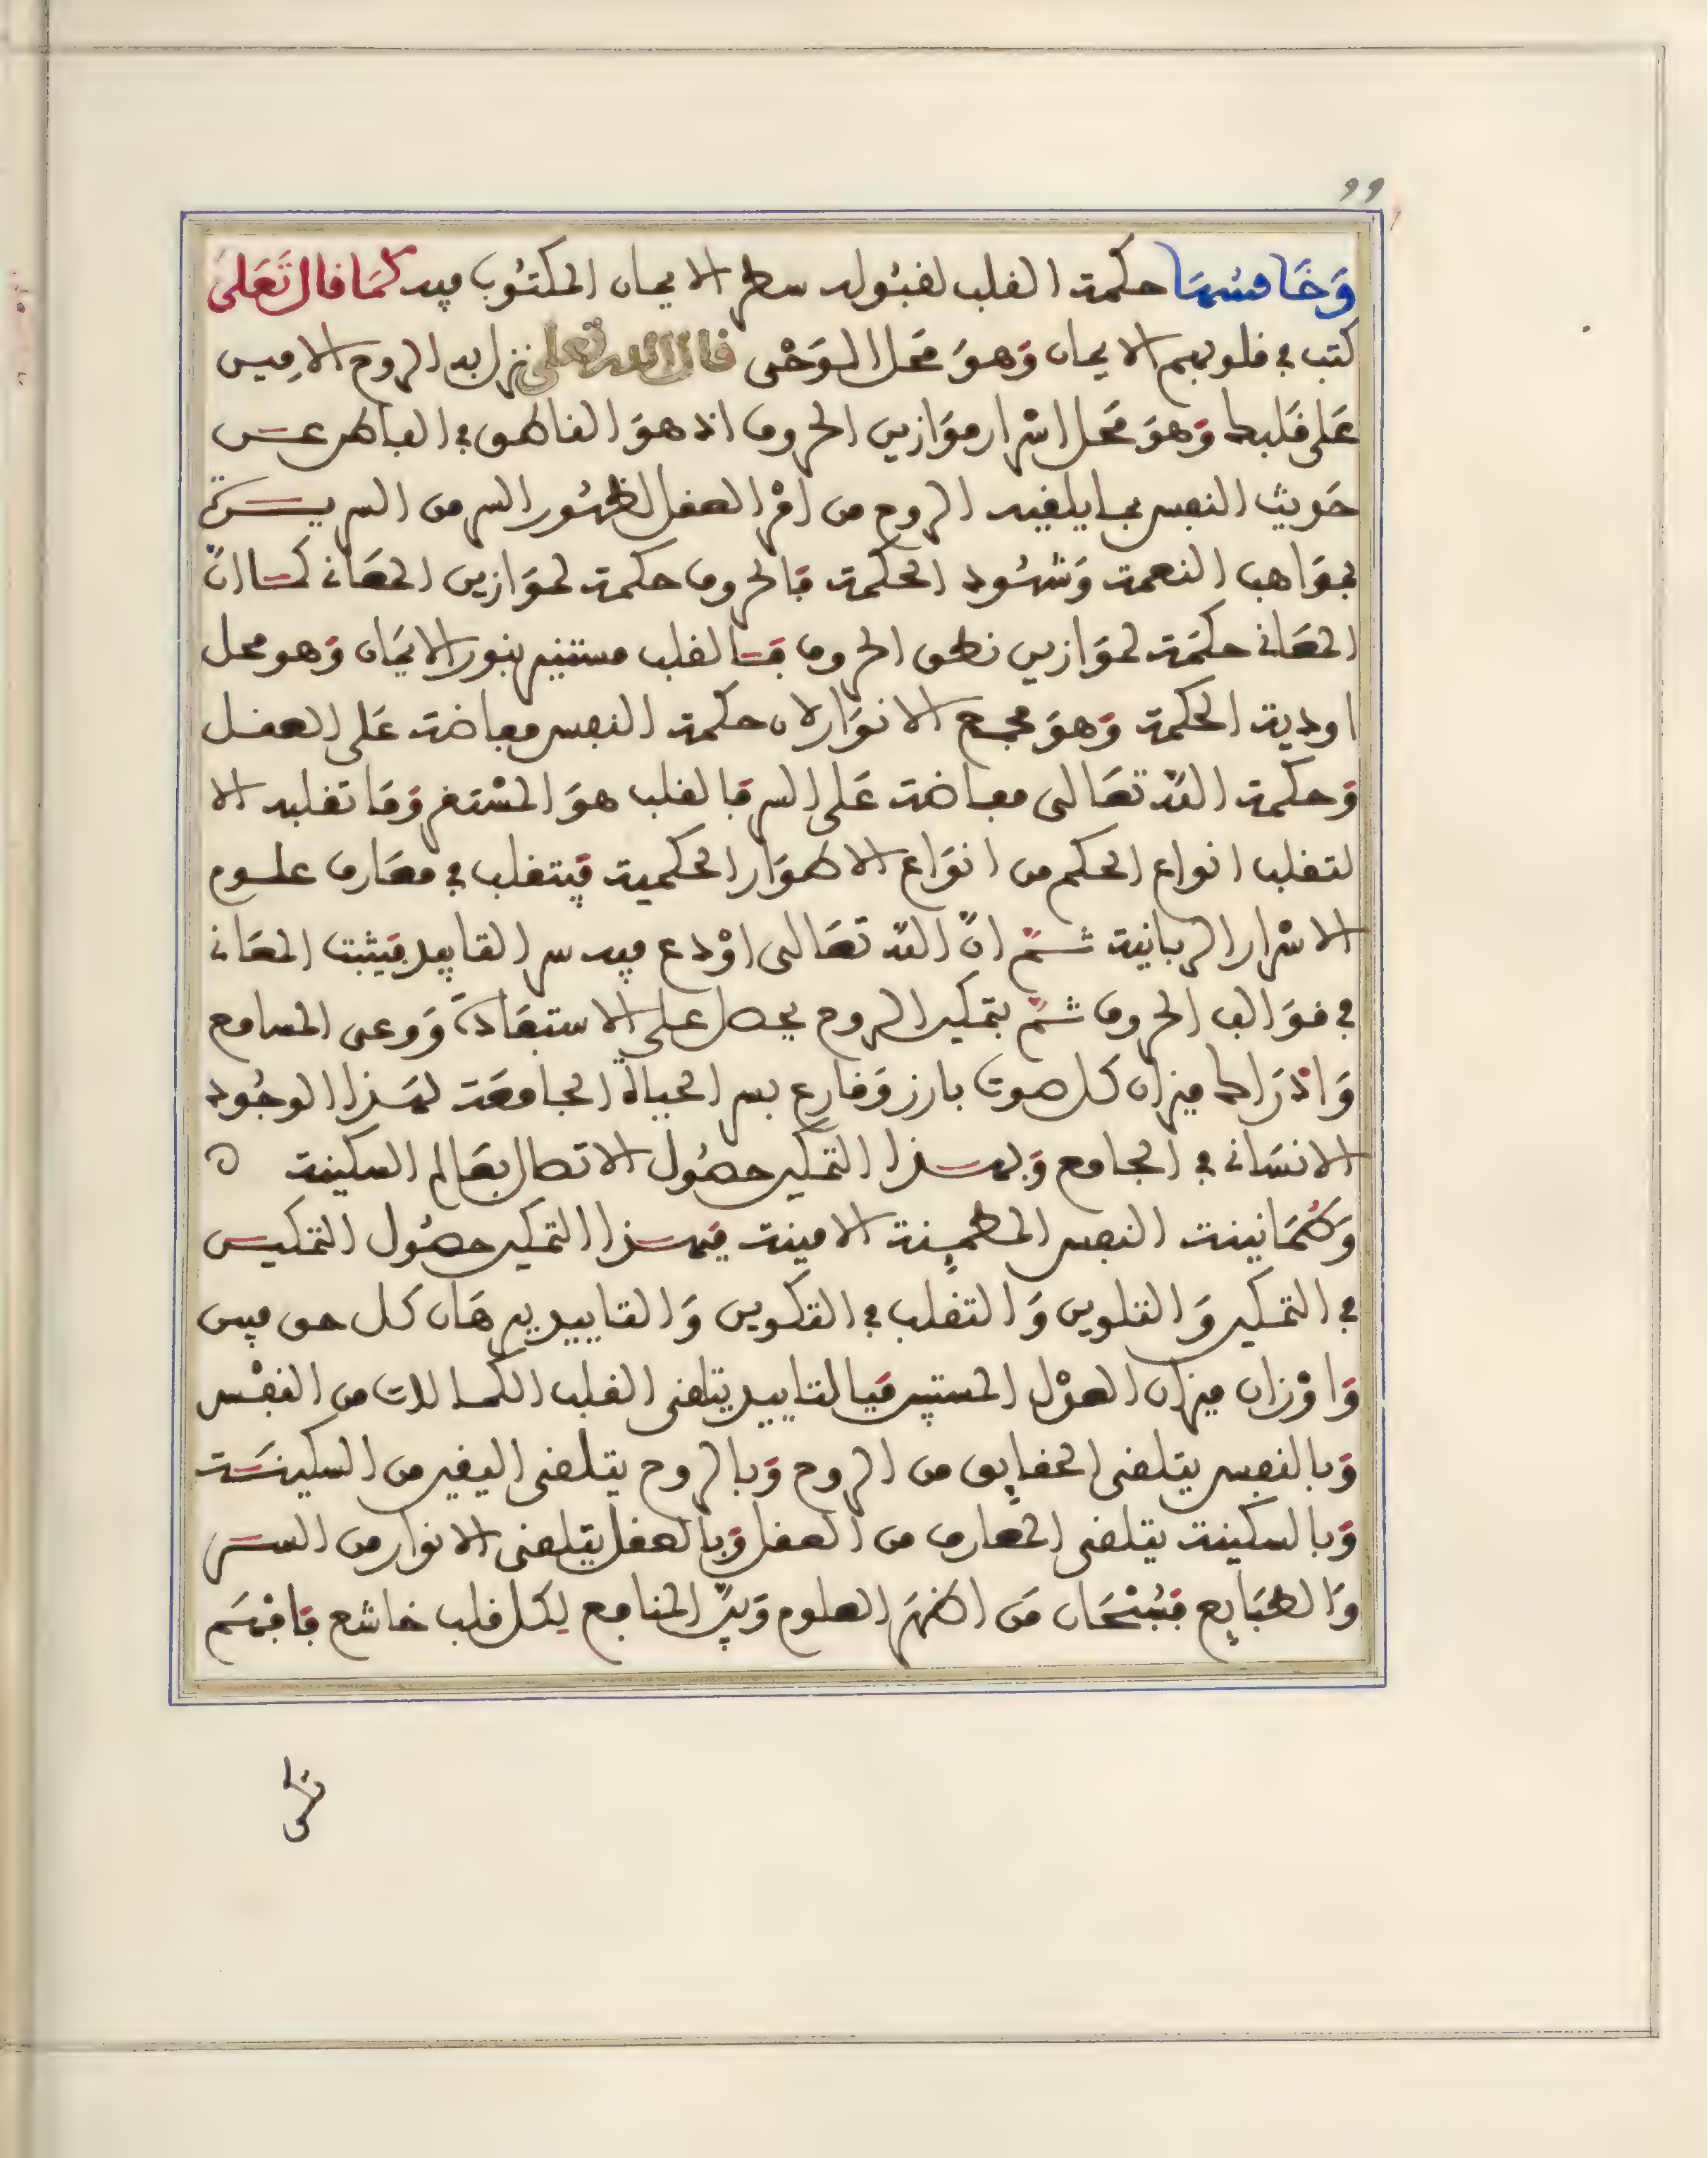 99
وَخَامسُهَا حكمة القلب لقبُوله سطر الايمان المكتُوب فيه كمَا قال تَعَلى
كتب في قلوبهم الايمان وَهوَ مَحل الوَحْى قال الله تعلى نزل به الروح الامِين
عَلى قَلبك وَهوَ مَحل اسْرار موَازين الحروف اذ هوَ الناطق في الباطن عـــن
حَديث النفس بما يلقيه الروح من امْر العقل لظهُور السر من السريــرة
بموَاهب النعمة وَشهُود الحكمة فالحروف حكمة لموَازين المعَاني كمــا انّ
المعَاني حكمَة لموَازين نطق الحروف فــالقلب مستنير بنور الايمَان وَهو محل
اودية الحكمة وَهوَ مجمع الانوَار لان حكمة النفس مفاضة عَلى العقــل
وَحكمة اللّه تعَالى مفاضة عَلى السر فالقلب هوَ المسْتقر وَمَا تقلبه الا
لتقلب انواع الحكم من انوَاع الاطوَار الحكمية فيتقلب في معَارف علــوم
الاسْرار الربانية ثــمّ انّ اللّه تعَالى اوْدع فيه سر التاييد فيثبت المعَاني
في قوَالب الحروف ثــمّ بتمكين الروح يحصل على الاستفَادة وَوعى المسامع
وَاذرَاك ميزان كل صوت بارز وَقارع بسر الحياة الجامعَة لهَذا الوجُود
الانسَاني في الجامع وَبهــذا التمكين حصُول الاتصال بعَالم السكينة ه
وَطُمَانينة النفس المطمينة الامينة فبهــذا التمكين حصُول التمكيــن
في التمكين وَالتلوين وَالتقلب في التكوين وَالتاييد يبرهَان كل حق مبين
وَاوْزان ميزان العوْل المستبين فبالتاييد يتلقى القلب الكمــالات من النفْس
وَبالنفس يتلقى الحقايق من الروح وَبالروح يتلقى اليقين من السكينَــة
وَبالسكينة يتلقى المعارف من العقل وَبالعقل يتلقى الانوار من الســر
وَالطبَايع فسُبْحَان مَن اظهَر العلوم وَبيّن المنافع لكل قلب خاشع فافهَم